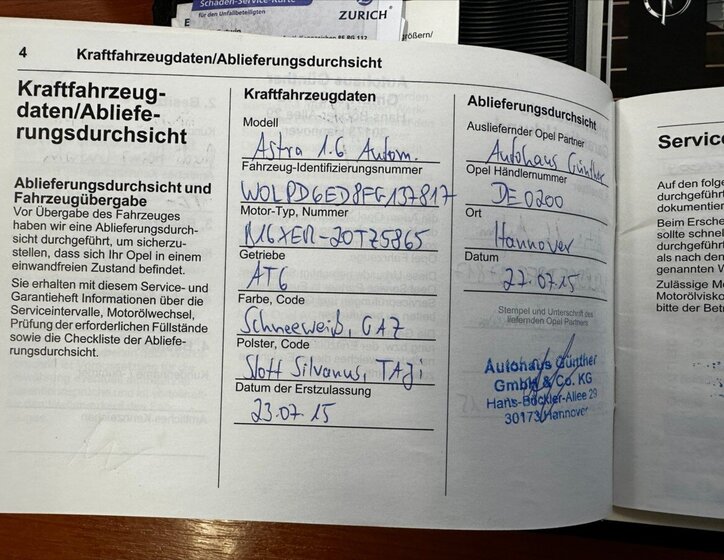 Schaden-Service-Karte
für den Unfallbeteiligten
ZURICH
größern/
4 Kraftfahrzeugdaten/Ablieferungsdurchsicht
Kraftfahrzeug-
daten/Abliefe-
rungsdurchsicht
Ablieferungsdurchsicht und
Fahrzeugübergabe
Vor Übergabe des Fahrzeuges
haben wir eine Ablieferungsdurch-
sicht durchgeführt, um sicherzu-
stellen, dass sich Ihr Opel in einem
einwandfreien Zustand befindet.
Sie erhalten mit diesem Service- und
Garantieheft Informationen über die
Serviceintervalle, Motorölwechsel,
Prüfung der erforderlichen Füllstände
sowie die Checkliste der Abliefe-
rungsdurchsicht.
Kraftfahrzeugdaten
Modell
Astra 1.6 Autom.
Fahrzeug-Identifizierungsnummer
W0LPD6ED8FG137817
Motor-Typ, Nummer
B16XER-20TZ5865
Getriebe
AT6
Farbe, Code
Schneeweiß, GAZ
Polster, Code
Stoff Silvanus, TAJi
Datum der Erstzulassung
23.07.15
Ablieferungsdurchsicht
Ausliefernder Opel Partner
Autohaus Günther
Opel Händlernummer
DE0200
Ort
Hannover
Datum
22.07.15
Stempel und Unterschrift des
liefernden Opel Partners
Autohaus Günther
GmbH & Co. KG
Hans-Böckler-Allee 29
30173 Hannover
Service
Auf den folge
durchgeführt
dokumentier
Beim Ersche
sollte schnell
durchgeführt
als nach den
genannten W
Zulässige Mo
Motorölvisk
bitte der Betr